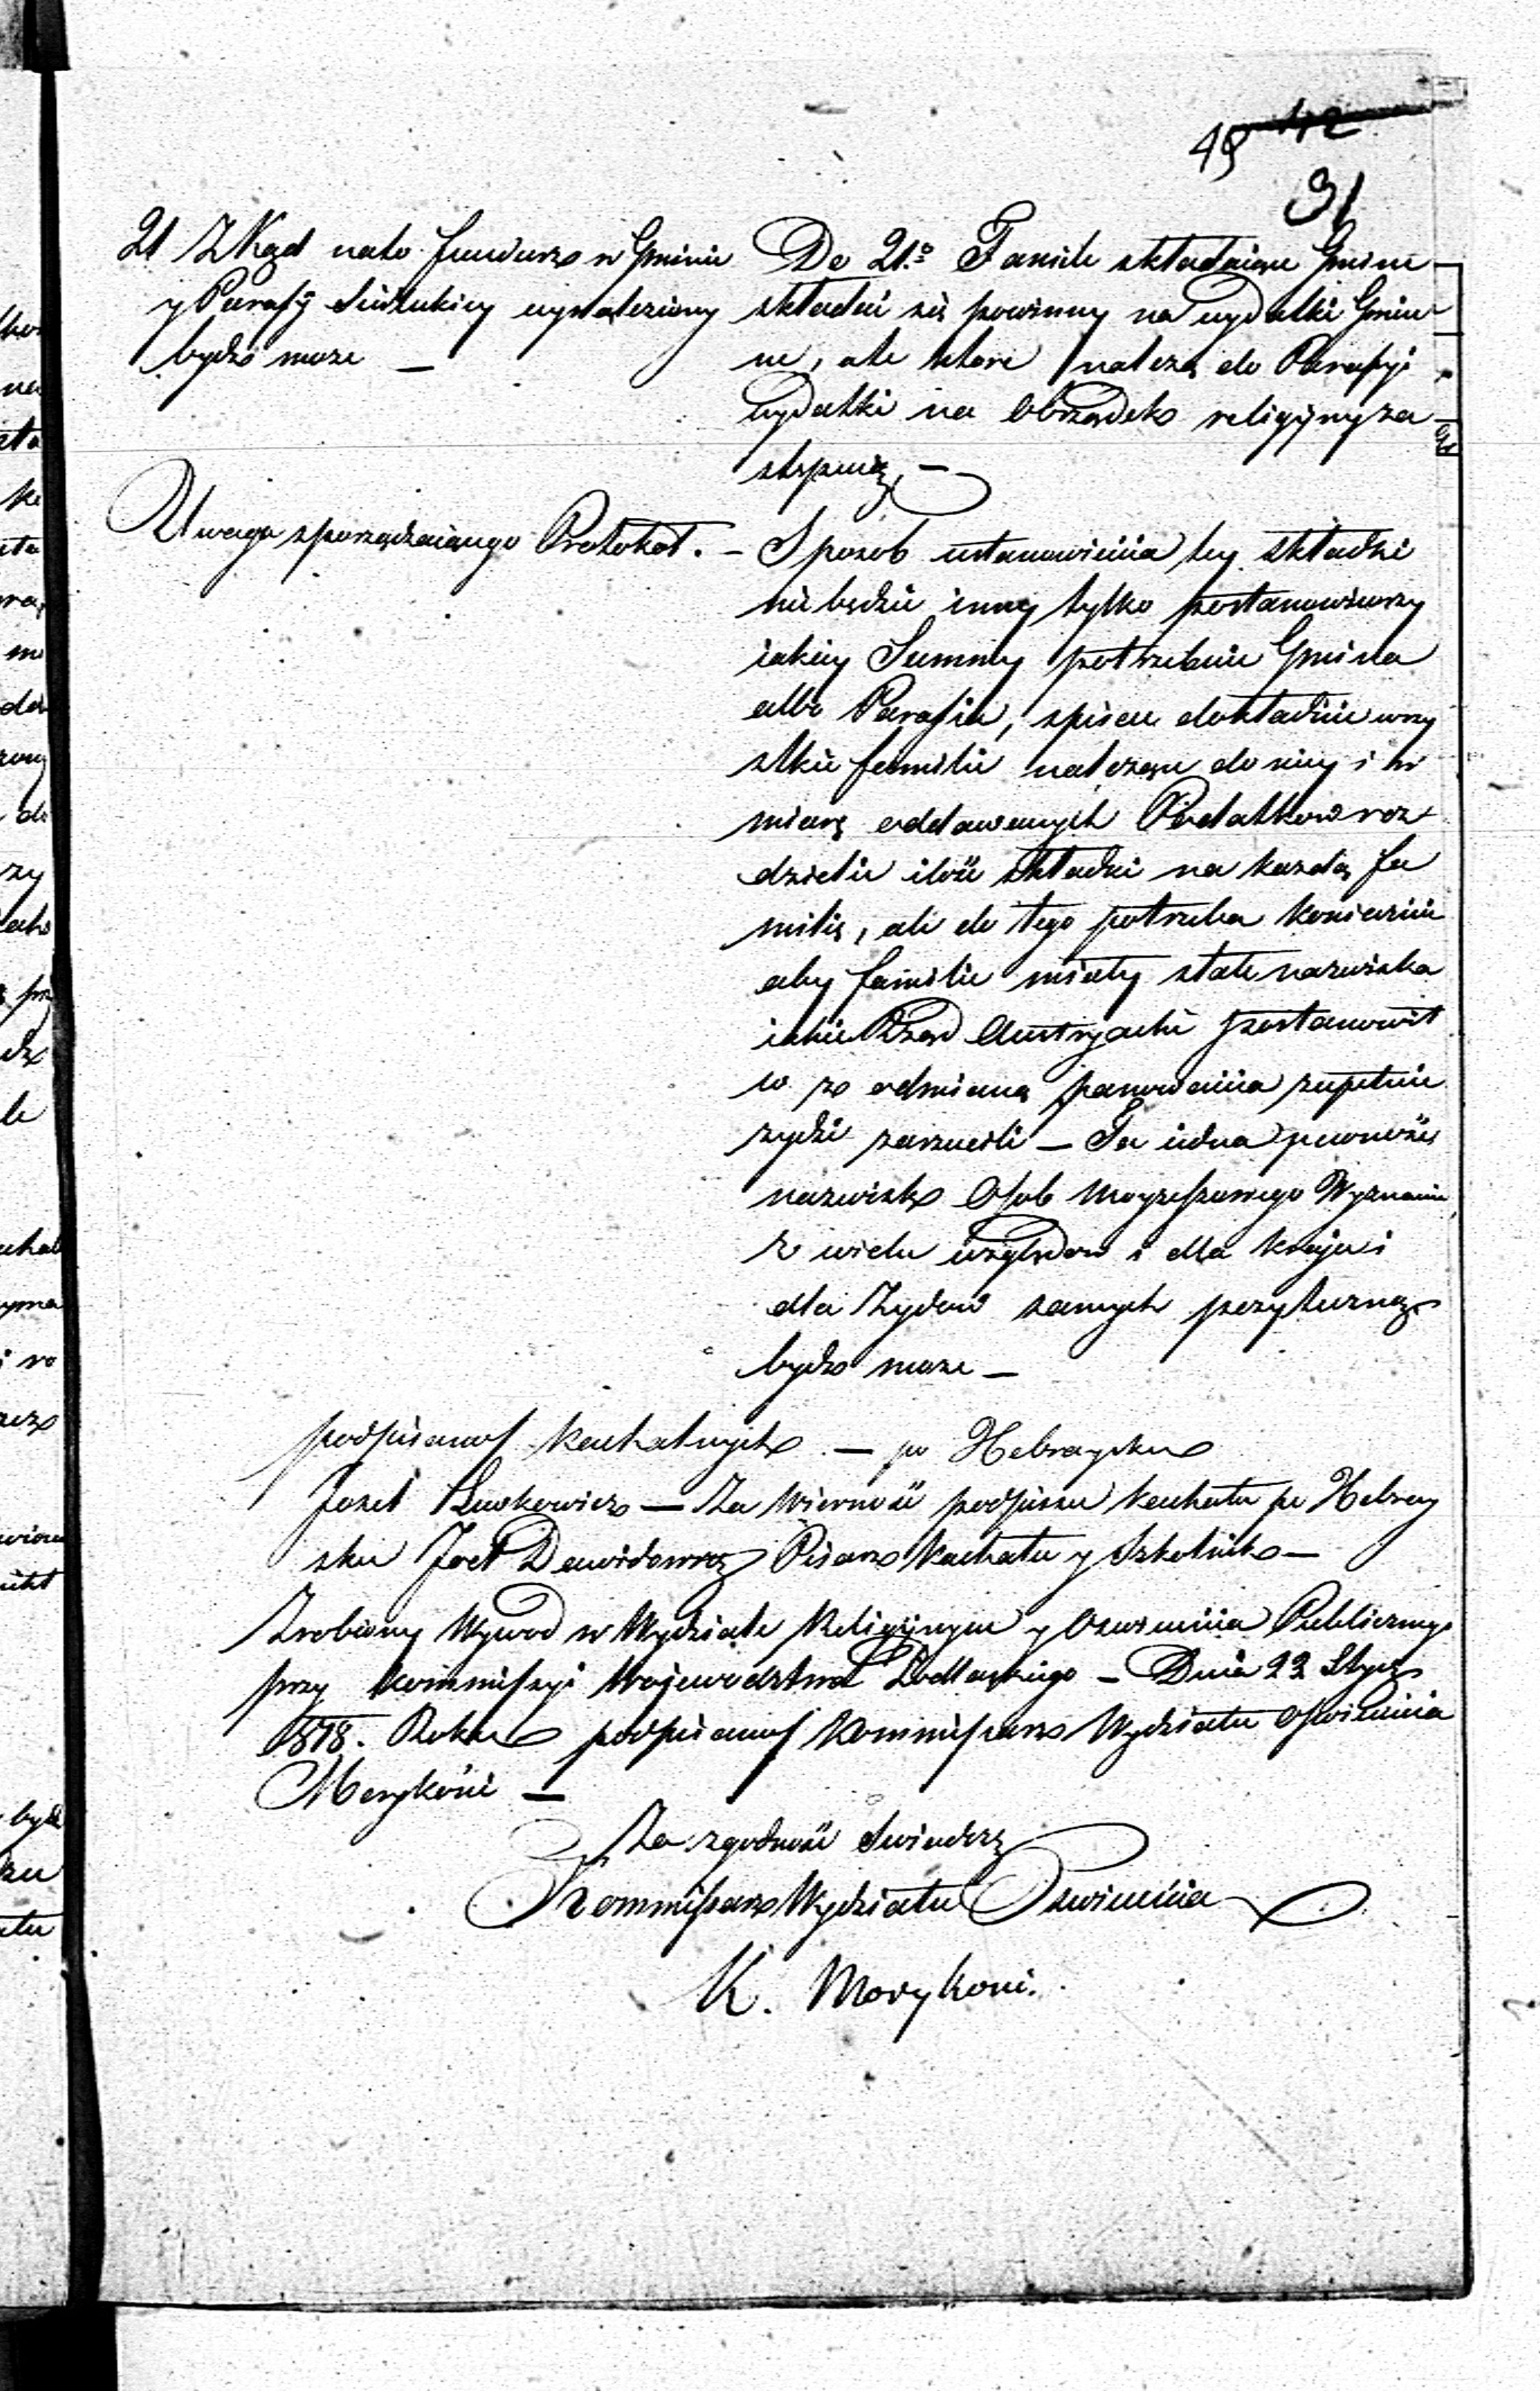 49 42
31
21 Zkąd nato fundusz w Gminie
y Parafÿ Siedleckiey wynaleziony
bydź moze —
Do 21º Familie składaiące Gminę
składać się powinny na wydatki Gmin
ne, ale które należą do Parafyi
wydatki na Obrządek religijny za
stępuią, —
Uwaga sporządzaiącego Protokoł. —
Sposob ustanowienia tey składki
nie będzie inny tylko postanowiwszy
iakiey Summy potrzebuie Gmina
albo Parafia, spisać dokładnie wszy
stkie familie należące do niey i w
miarę oddawanych Podatkow roz
dzielić ilość składki na kazdą fa
milię, ale do tego potrzeba koniecznie
aby familie miały stałe nazwiska
iakie Rząd Austryacki postanowił
co z odmianą panowania zupełnie
żydzi zarzucili — Ta iedna pewność
nazwisk Osob Moyżeszowego Wyznania
z wielu względow i dla kraju i
dla Żydow samych pożyteczną
bydź moze —
podpisano Kachalnych — po Hebraysku
Josel Lewkowicz — Za wierność podpisu kachału po Hebray
sku Joel Dawidowicz Pisarz Kachału y Szkolnik —
Zrobiony Wywod w Wydziale Religijnym y Oswiecenia Publicznego
przy Kommissyi Wojewodztwa Podlaskiego — Dnia 22 Stycz
1818. Roku podpisano Kommissarz Wydziału Oswiecenia
Morykoni —
Za zgodność Swiadczę
Kommissarz Wydziału Oswiecenia
K. Morykoni.